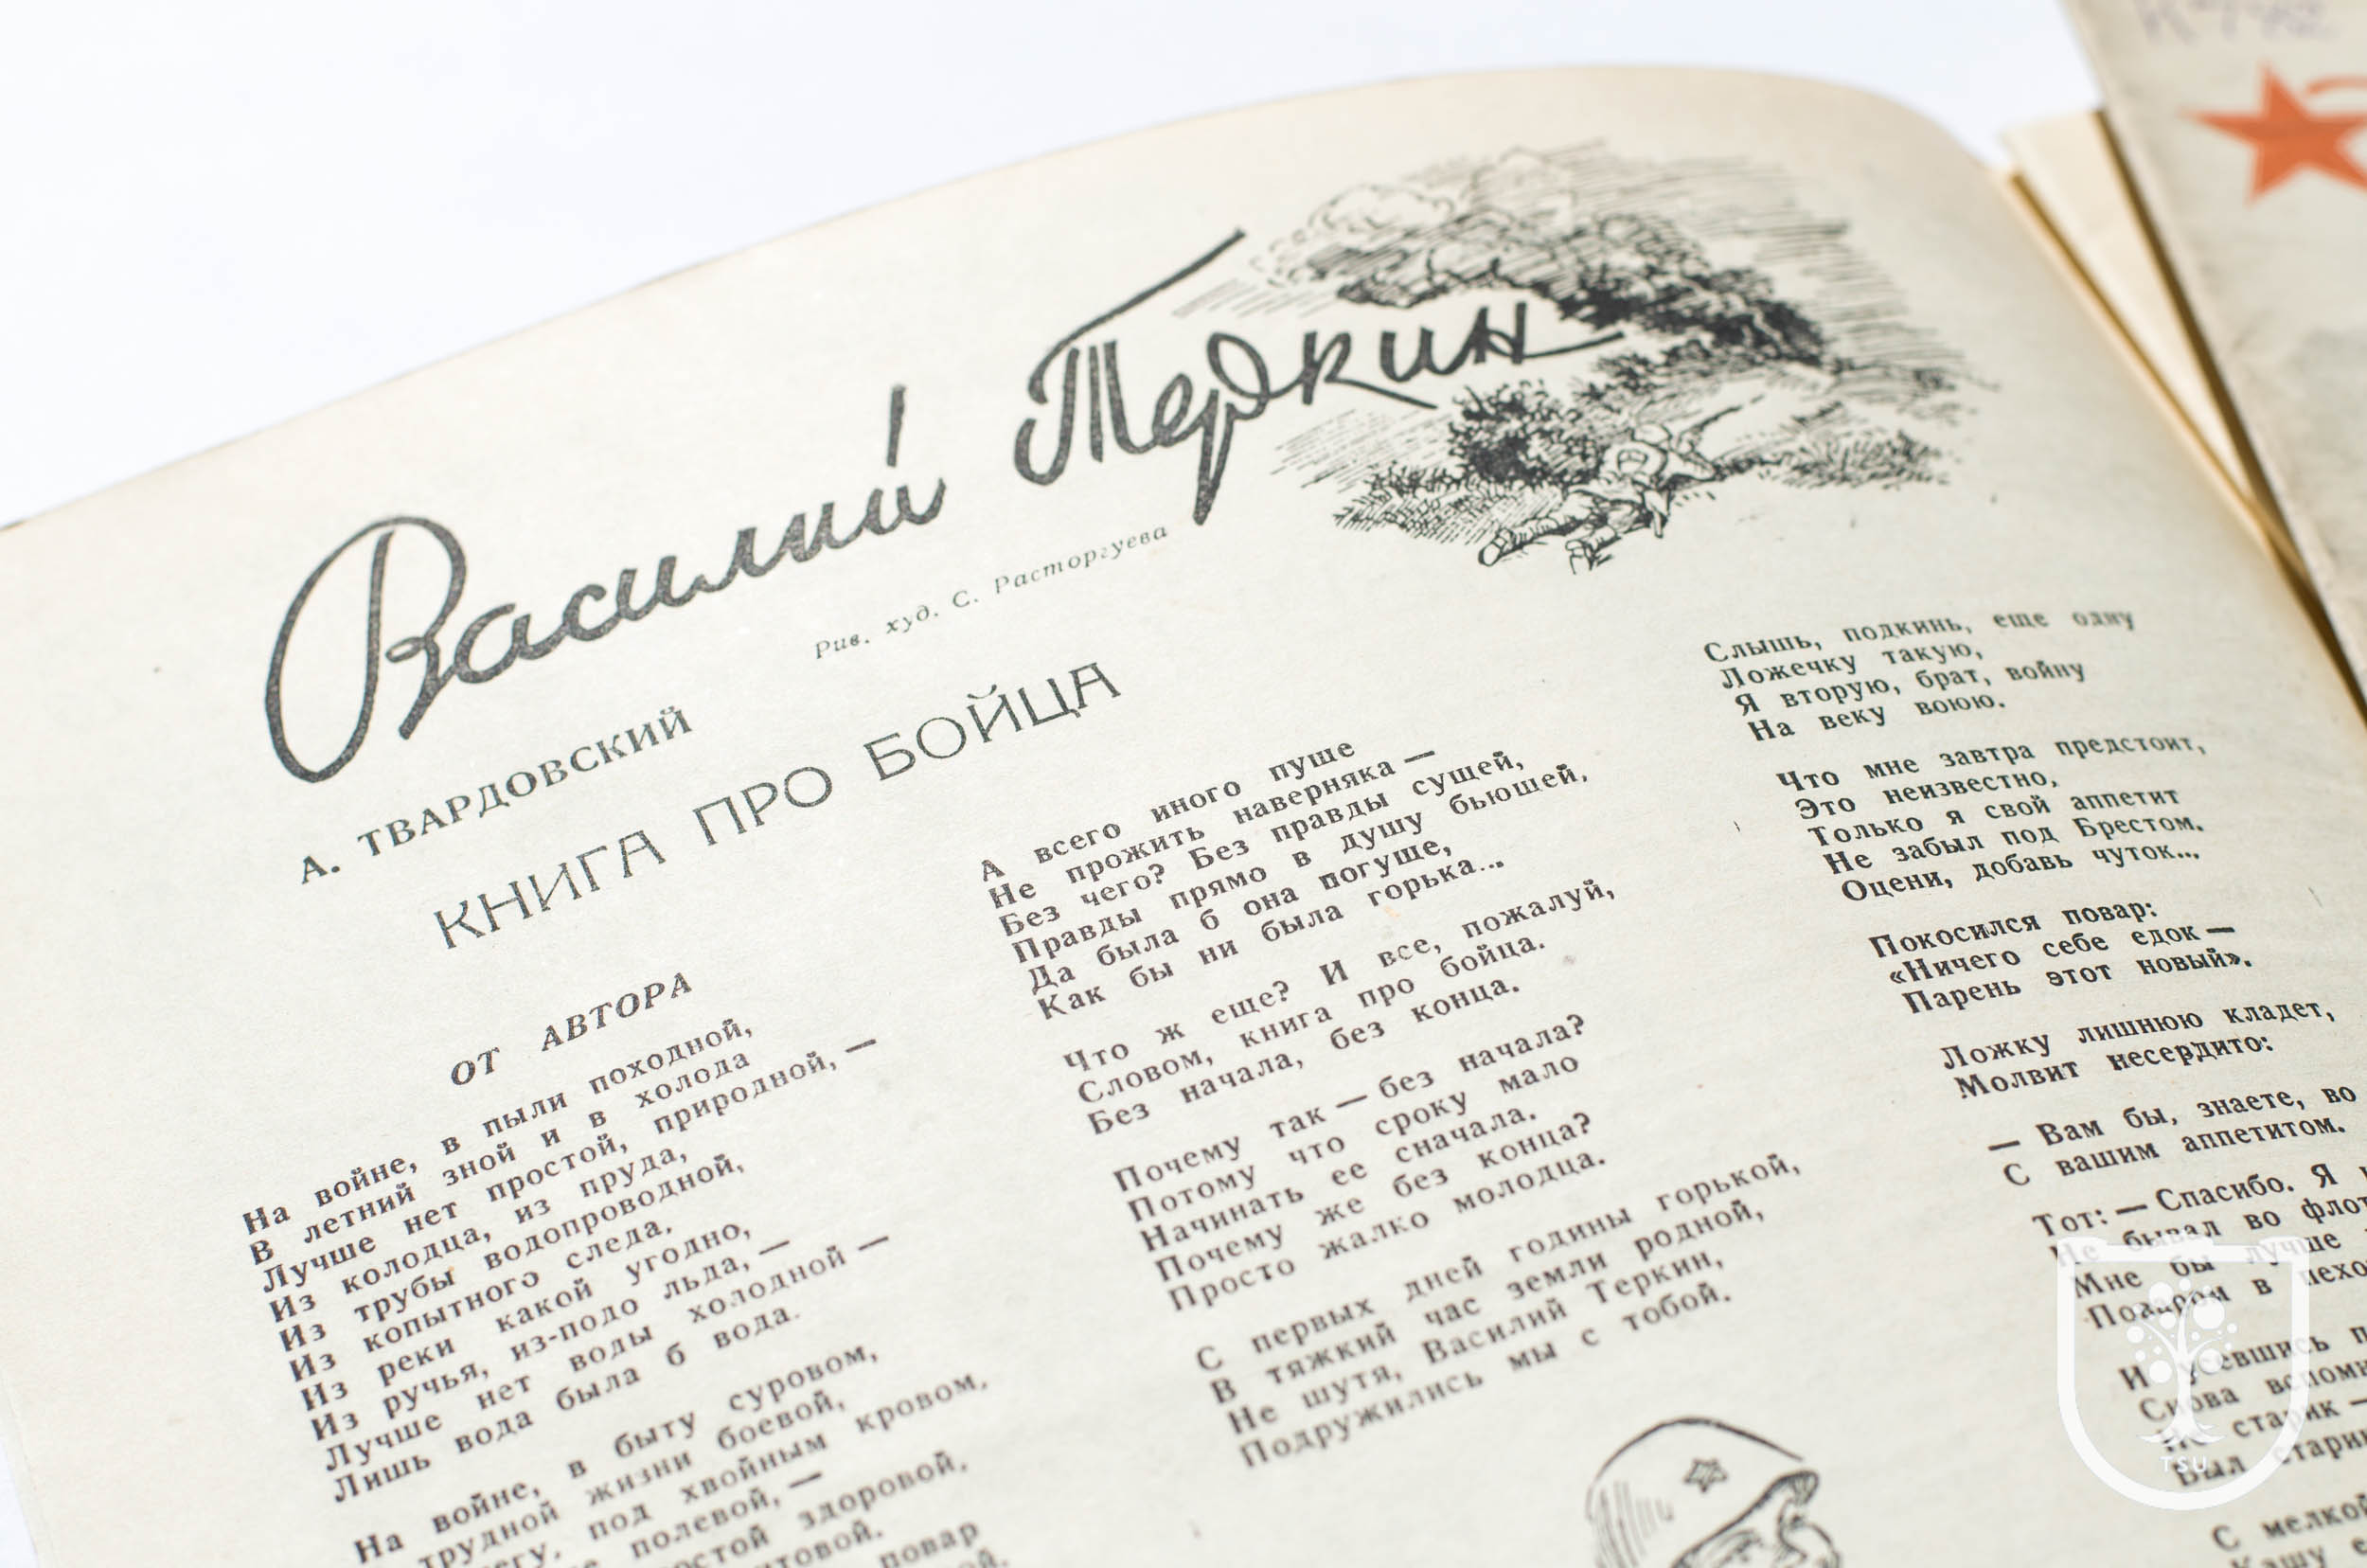 Василий Теркин
Рис. худ. С. Расторгуева
А. ТВАРДОВСКИЙ
КНИГА ПРО БОЙЦА
ОТ АВТОРА
На войне, в пыли походной,
В летний зной и в холода
Лучше нет простой, природной, —
Из колодца, из пруда,
Из трубы водопроводной,
Из копытного следа,
Из реки какой угодно,
Из ручья, из-подо льда, —
Лучше нет воды холодной —
Лишь вода была б вода.
На войне, в быту суровом,
трудной жизни боевой,
под хвойным кровом,
полевой, —
здоровой,
повар
А всего иного пуще
Не прожить наверняка —
Без чего? Без правды сущей,
Правды прямо в душу бьющей,
Да была б она погуще,
Как бы ни была горька...
Что ж еще? И все, пожалуй,
Словом, книга про бойца.
Без начала, без конца.
Почему так — без начала?
Потому что сроку мало
Начинать ее сначала.
Почему же без конца?
Просто жалко молодца.
С первых дней годины горькой,
В тяжкий час земли родной,
Не шутя, Василий Теркин,
Подружились мы с тобой.
Слышь, подкинь, еще одну
Ложечку такую,
Я вторую, брат, войну
На веку воюю.
Что мне завтра предстоит,
Это неизвестно,
Только я свой аппетит
Не забыл под Брестом.
Оцени, добавь чуток...
Покосился повар:
«Ничего себе едок —
Парень этот новый».
Ложку лишнюю кладет,
Молвит несердито:
— Вам бы, знаете, во
С вашим аппетитом.
Тот: — Спасибо. Я
Не бывал во
Мне бы лучше
в
И усевшись
Снова
старик —
Был
С мелкой
TSU